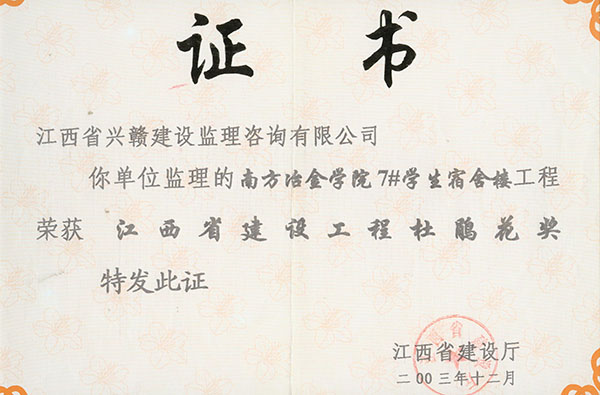 证书
江西省兴赣建设监理咨询有限公司
你单位监理的南方冶金学院7#学生宿舍楼工程
荣获 江西省建设工程杜鹃花奖
特发此证
江西省建设厅
二00三年十二月